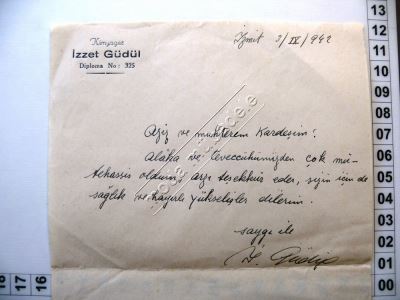 Kimyager
İzzet Güdül
Diploma No: 325
İzmit 3/IV/942
Aziz ve muhterem Kardeşim:
Alâka ve teveccühünüzden çok mü-
tehassis oldum, arzı teşekkür eder, sizin için de
sağlık ve hayırlı yükselişler dilerim.
saygı ile
İ. Güdül
13
12
11
10
09
08
07
06
05
04
03
02
01
00
18
17
16